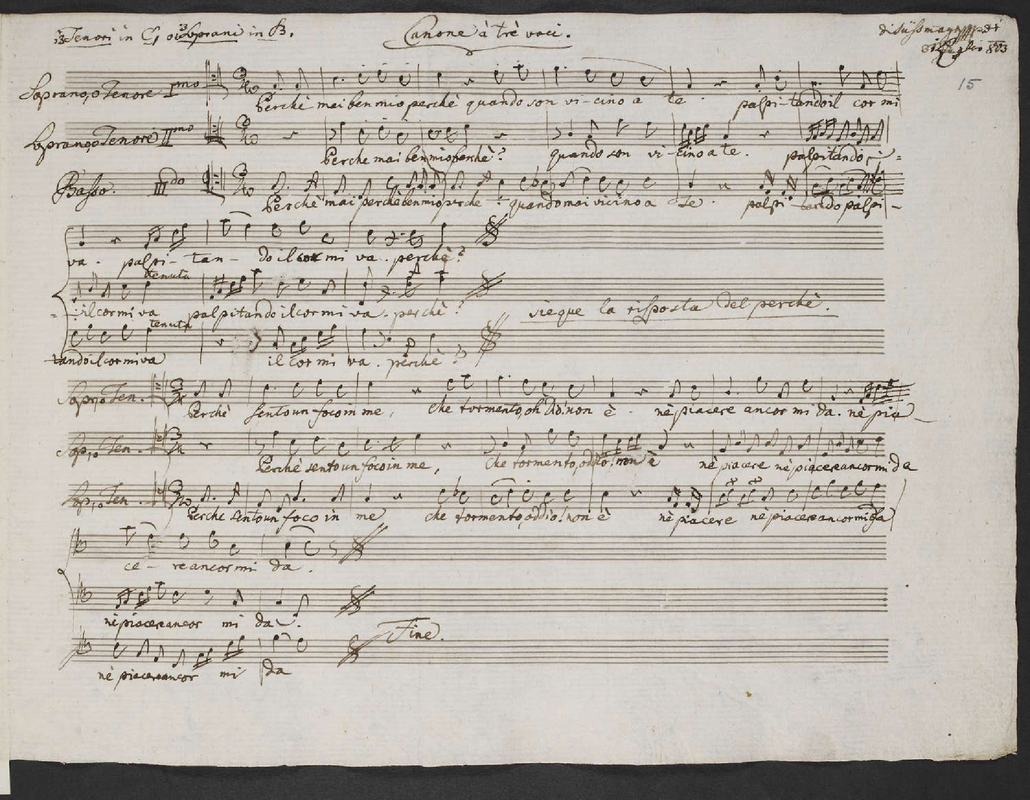 3 Tenori in C, o 3 Soprani in B.
Canone à trè voci.
di Süssmayr
803
15
Soprano, o Tenore I.mo
Perchè mai ben mio perchè quando son vi-cino a te. palpi-tando il cor mi
Soprano, o Tenore II.
Perche mai ben mio perchè? quando son vi-cino a te. palpitando
Basso. III
Perchè mai perchè ben mio perche? quando mai vicino a te. palpi-tando palpi-
va. palpi-tan-do il cor mi va. perchè?
tenuta
il cor mi va palpitando il cor mi va. perchè?
sieque la risposta del perchè.
tenuta
tando il cor mi va il cor mi va. perchè?
Sopr, o Ten.
Perchè sento un foco in me, che tormento, oh Dio! non è. nè piacere ancor mi da. nè pia
Sop, o Ten.
Perchè sento un foco in me, Che tormento, oddio! non è nè piacere nè piacere ancor mi da
Sop, o Ten.
Perche sento un foco in me che tormento, oddio! non è nè piacere nè piacere ancor mi da
ce-re ancor mi da.
nè piacere ancor mi da.
Fine.
nè piacere ancor mi da